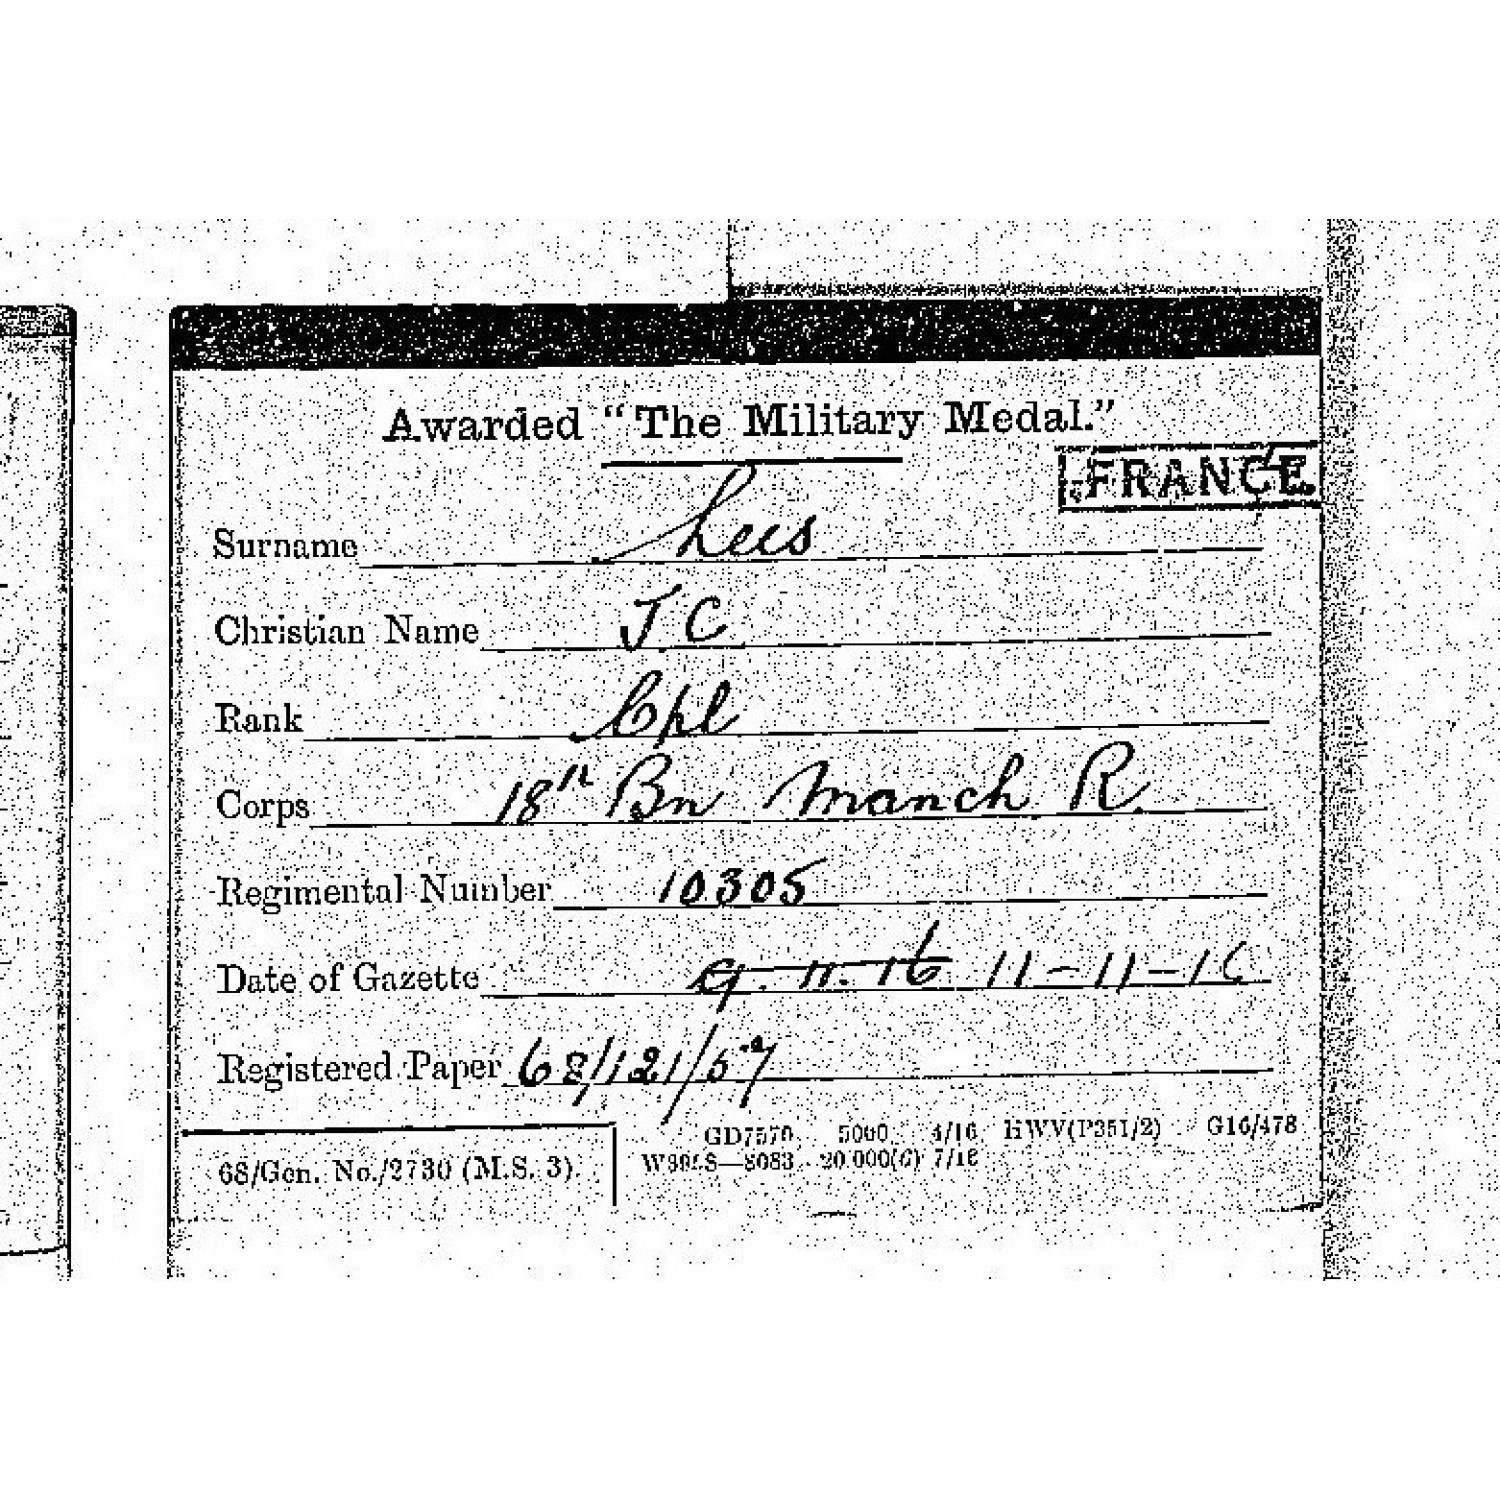 Awarded "The Military Medal."
FRANCE.
Surname Lees
Christian Name J. C
Rank Cpl
Corps 18th Bn Manch R.
Regimental Number 10305
Date of Gazette 9.11.16 11-11-16
Registered Paper 68/121/57
68/Gen. No./2730 (M.S. 3).
GD7570 5000 4/16 HWV(P351/2) G16/478
20,000(6) 7/16